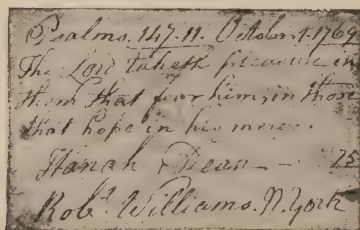 Psalms. 147. 11. October 1. 1769
The Lord taketh pleasure in
them that fear him, in those
that hope in his mercy.
Hanah Dean — 75
Rob.t Williams. N. York